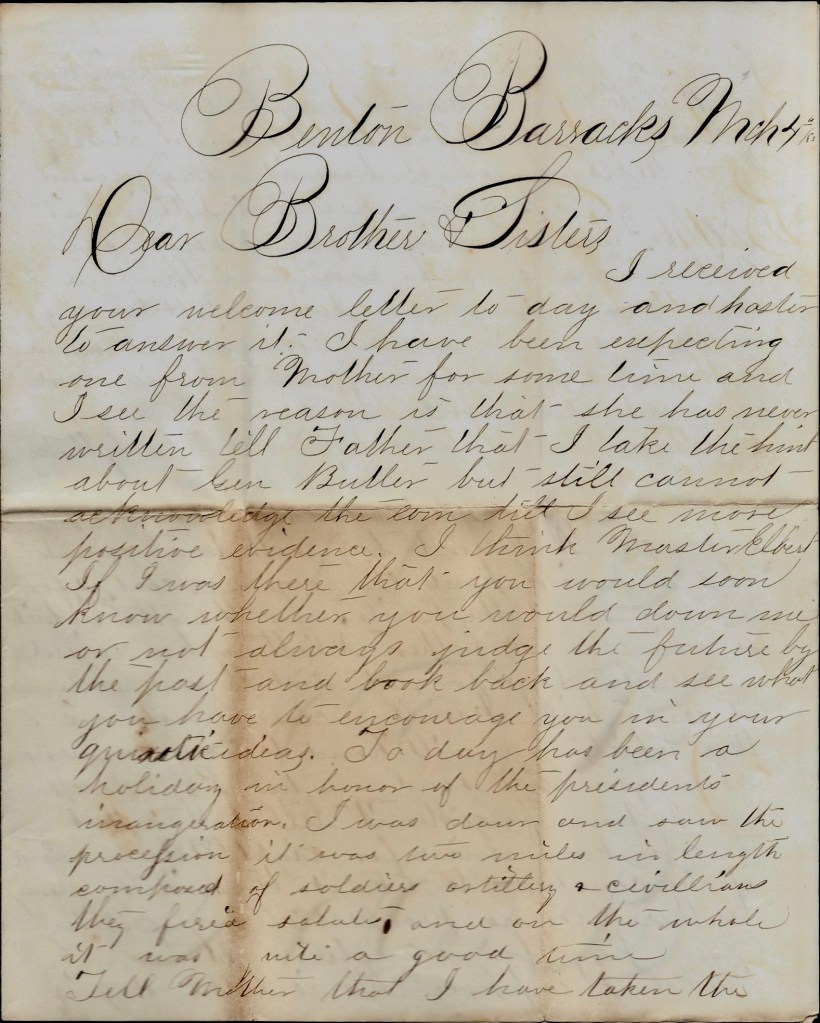 Benton Barracks, Mch 4th
Dear Brother & Sisters
I received
your welcome letter to day and hasten
to answer it. I have been expecting
one from Mother for some time and
I see the reason is that she has never
written tell Father that I take the hint
about Gen Butler but still cannot
acknowledge the corn till I see more
positive evidence. I think Master Elbert
If I was there that you would soon
know whether you would down me
or not always judge the future by
the past and look back and see what
you have to encourage you in your
ideas. To day has been a
holiday in honor of the presidents
inaugeration. I was down and saw the
procession it was two miles in length
composed of soldiers artillery & civillians
they fired salutes, and on the whole
it was a good time
Tell Mother that I have taken the